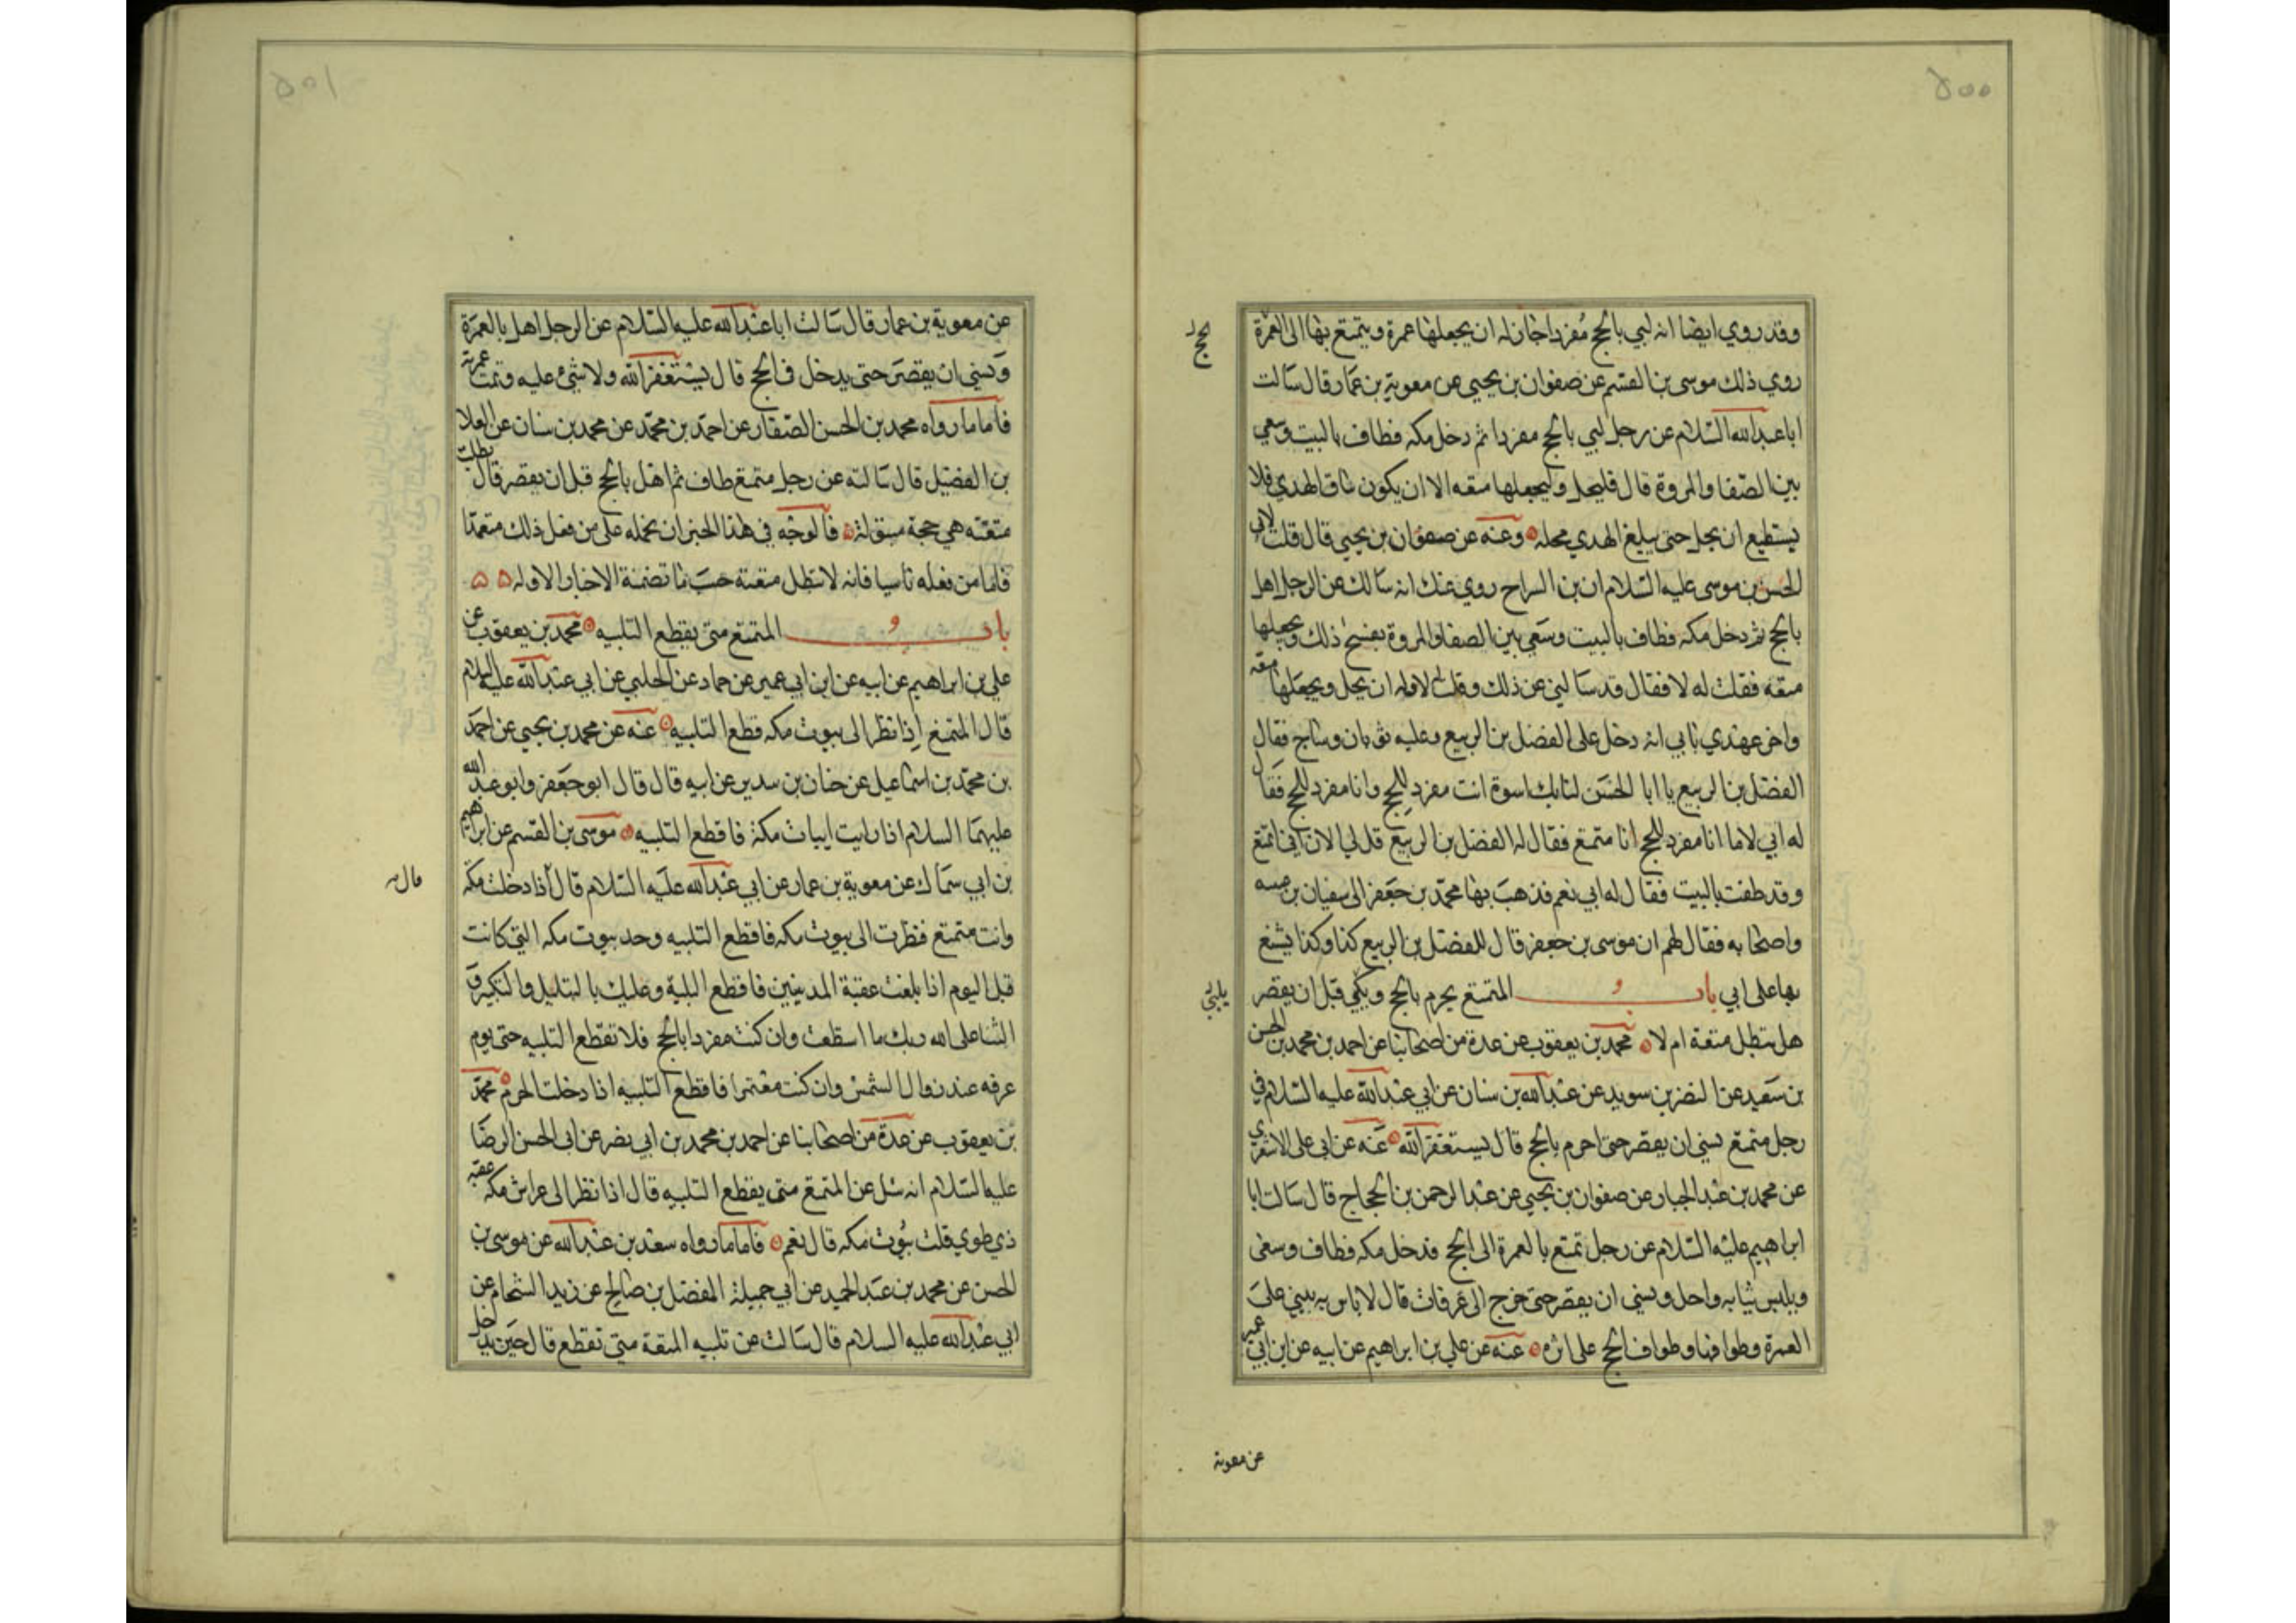 ٥٠٠
وقد روي ايضا انه لبي بالحج مفردا جاز له ان يجعلها عمرة ويتمتع بها الى العمرة
الحج
روي ذلك موسى بن القسم عن صفوان بن يحيى عن معوية بن عمار قال سالت
ابا عبدالله السلام عن رجل لبي بالحج مفردا ثم دخل مكه فطاف بالبيت وسعي
بين الصفا والمروة قال فليحل وليجعلها متعه الا ان يكون ساق الهدي فلا
يستطيع ان يحل حتى يبلغ الهدي محله وعنه عن صفوان بن يحيى قال قلت لابي
الحسن بن موسى عليه السلام ان بن السراج روي عنك انه سالك عن الرجل اهل
بالحج ثم دخل مكه فطاف بالبيت وسعي بين الصفا والمروة يفسخ ذلك ويجعلها
متعه فقلت له لا فقال قد سالني عن ذلك وقلت له لا وله ان يحل ويجعلها متعه
واخر عهدي بابي انه دخل على الفضل بن الربيع وعليه ثوبان وساج فقال
الفضل بن الربيع يا ابا الحسن لنا بك اسوة انت مفرد للحج وانا مفرد للحج فقال
له ابي لا ما انا مفرد للحج انا متمتع فقال له الفضل بن الربيع قل لي الان اني اتمتع
وقد طفت بالبيت فقال له ابي نعم فذهب بها محمد بن جعفر الى سفيان بن عيينه
واصحابه فقال لهم ان موسى بن جعفر قال للفضل بن الربيع كذا وكذا يشنع
بها على ابي باب المتمتع يحرم بالحج ويلبي قبل ان يقصر
يلبي
هل تبطل متعة ام لا محمد بن يعقوب عن عدة من اصحابنا عن احمد بن محمد بن الحسن
بن سعيد عن النضر بن سويد عن عبدالله بن سنان عن ابي عبدالله عليه السلام في
رجل متمتع نسي ان يقصر حتى احرم بالحج قال يستغفر الله عنه عن ابي على الاشعري
عن محمد بن عبد الجبار عن صفوان بن يحيى عن عبد الرحمن بن الحجاج قال سالت ابا
ابراهيم عليه السلام عن رجل تمتع بالعمرة الى الحج فدخل مكه فطاف وسعى
ويلبس ثيابه واحل ونسي ان يقصر حتى خرج الى عرفات قال لا باس به يبني على
العمرة وطوافها وطواف الحج على اثره عنه عن علي بن ابراهيم عن ابيه عن ابن ابي عمير
عن معوية
٥٠١
عن معوية بن عمار قال سالت ابا عبدالله عليه السلام عن الرجل اهل بالعمرة
ونسي ان يقصر حتى يدخل في الحج قال يستغفر الله ولا شيء عليه وتمت عمرته
فاما ما رواه محمد بن الحسن الصفار عن احمد بن محمد عن محمد بن سنان عن العلا
بن الفضيل قال سالته عن رجل متمتع طاف ثم اهل بالحج قبل ان يقصر قال بطلت
متعته هي حجة مبتولة فالوجه في هذا الخبر ان نحمله على من فعل ذلك متعمدا
فاما من فعله ناسيا فانه لا تبطل متعته حسب ما تضمنة الاخبار الاوله
باب المتمتع متى يقطع التلبيه محمد بن يعقوب عن
علي بن ابراهيم عن ابيه عن ابن ابي عمير عن حماد عن الحلبي عن ابي عبدالله عليه السلام
قال المتمتع اذا نظر الى بيوت مكه قطع التلبيه عنه عن محمد بن يحيى عن احمد
بن محمد بن اسماعيل عن حنان بن سدير عن ابيه قال قال ابو جعفر وابو عبد الله
عليهما السلام اذا رايت ابيات مكة فاقطع التلبيه موسى بن القسم عن ابراهيم
بن ابي سماك عن معوية بن عمار عن ابي عبدالله عليه السلام قال اذا دخلت مكه
وانت متمتع فنظرت الى بيوت مكه فاقطع التلبيه وحد بيوت مكه التي كانت
قبل اليوم اذا بلغت عقبة المدنيين فاقطع التلبية وعليك بالتهليل والتكبير و
الثنا على الله ربك ما استطعت وان كنت مفردا بالحج فلا تقطع التلبيه حتى يوم
عرفه عند زوال الشمس وان كنت معتمرا فاقطع التلبيه اذا دخلت الحرم محمد
بن يعقوب عن عدة من اصحابنا عن احمد بن محمد بن ابي نصر عن ابي الحسن الرضا
عليه السلام انه سئل عن المتمتع متى يقطع التلبيه قال اذا نظر الى عراش مكه عقبه
ذي طوي قلت بيوت مكه قال نعم فاما ما رواه سعد بن عبدالله عن موسى بن
الحسن عن محمد بن عبد الحميد عن ابي جميلة المفضل بن صالح عن زيد الشحام عن
ابي عبدالله عليه السلام قال سالت عن تلبيه المتعة متى تقطع قال حين يدخل